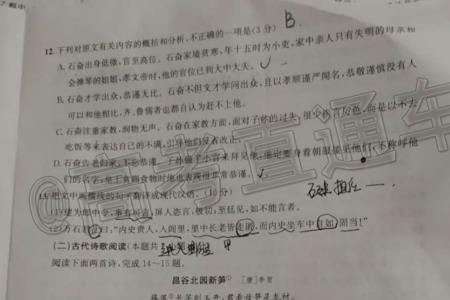 B.
12. 下列对原文有关内容的概括和分析，不正确的一项是(3分)
A. 石奋出身低微，官至高位。石奋家境贫寒，年十五时为小吏，家中亲人只有失明的母亲和
会弹琴的姐姐，孝文帝时，他的官位已到大中大夫。
B. 石奋才学出众，恭谨无比。石奋不但才学出众，且以孝顺谨严闻名，恭敬谨慎没有人
可以和他相比，齐、鲁儒者也都自认为赶不上他。
C. 石奋注重家教，润物无声。石奋在家教方面，面对子孙的过失，
，而是以不去
吃饭等来表达自己的
D. 石奋告老归家，
恭谨。子孙做了小官来拜见他，他定要身着朝服接见他们，不称呼他
们的名字；
13. 把文中画横线的句子翻译成现代汉语。(10分)
(1)建为郎中令，事有可言，屏人恣言，极切；至廷见，如不能言者。
(2)万石
曰："内史贵人，入闾里，里中长老皆走匿，而内史坐车中自如，固当！"
(二)古代诗歌阅读(本题共
阅读下面两首诗，完成14～15题。
昌谷北园新笋 [唐]李贺